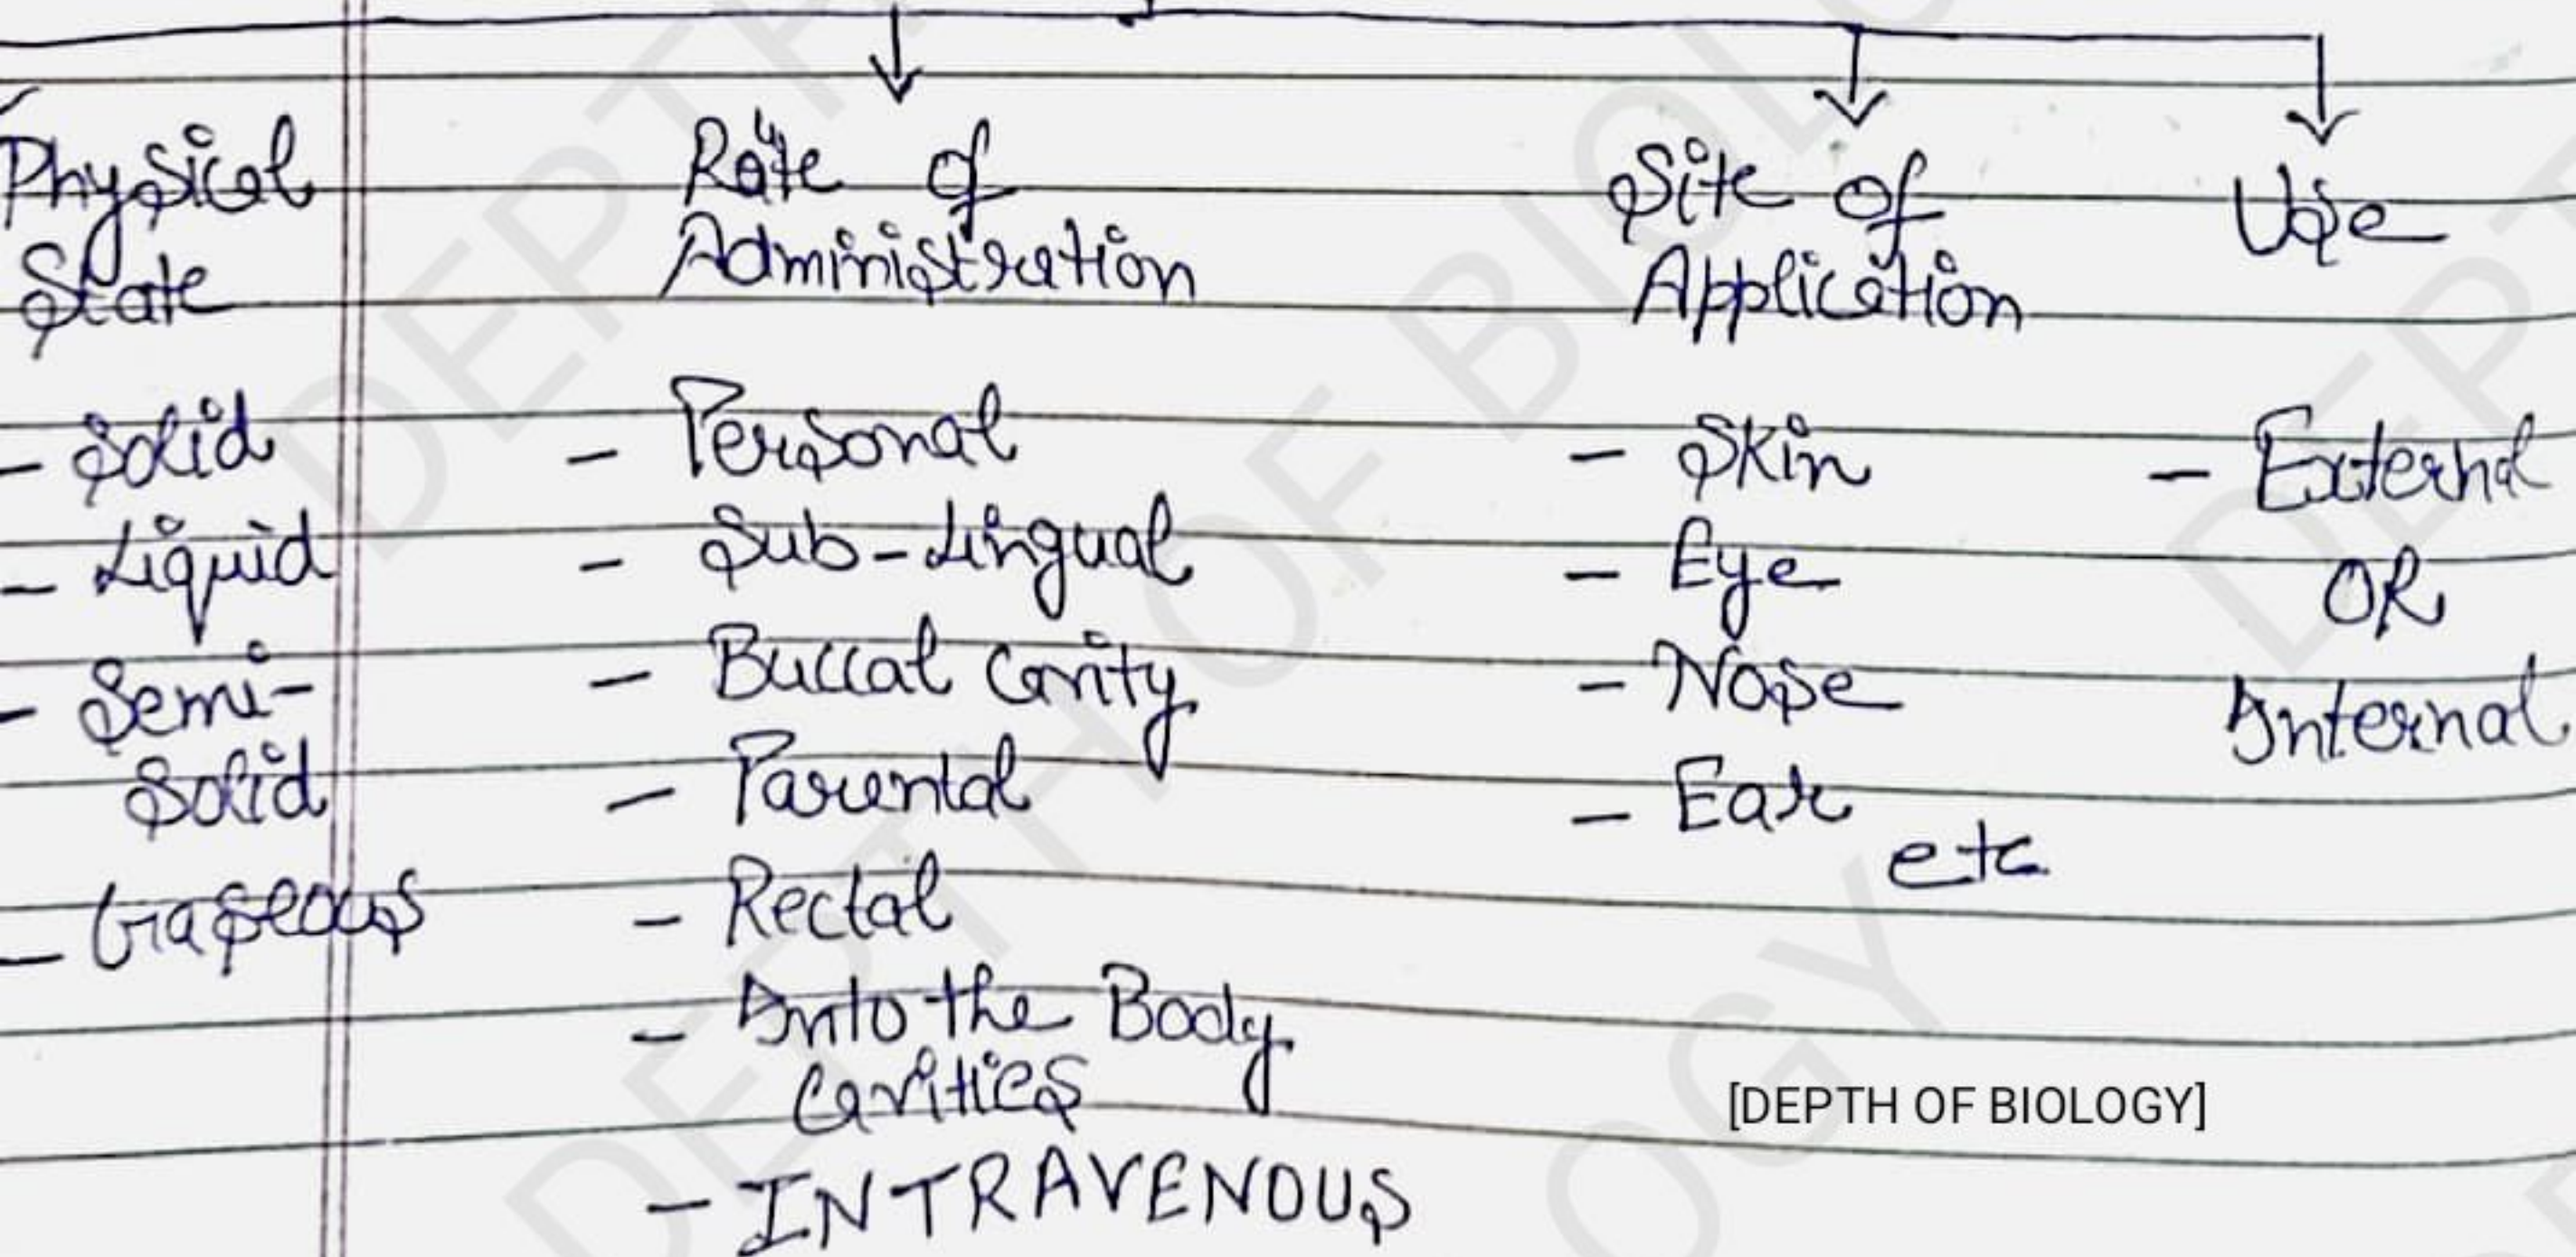 Physical
State
- Solid
- Liquid
- Semi-
Solid
- Gaseous
Rate of
Administration
- Personal
- Sub-Lingual
- Buccal Cavity
- Parental
- Rectal
- Into the Body
Cavities
- INTRAVENOUS
Site of
Application
- Skin
- Eye
- Nose
- Ear
etc
Use
- External
OR
Internal
[DEPTH OF BIOLOGY]
DEPTH OF BIOLOGY